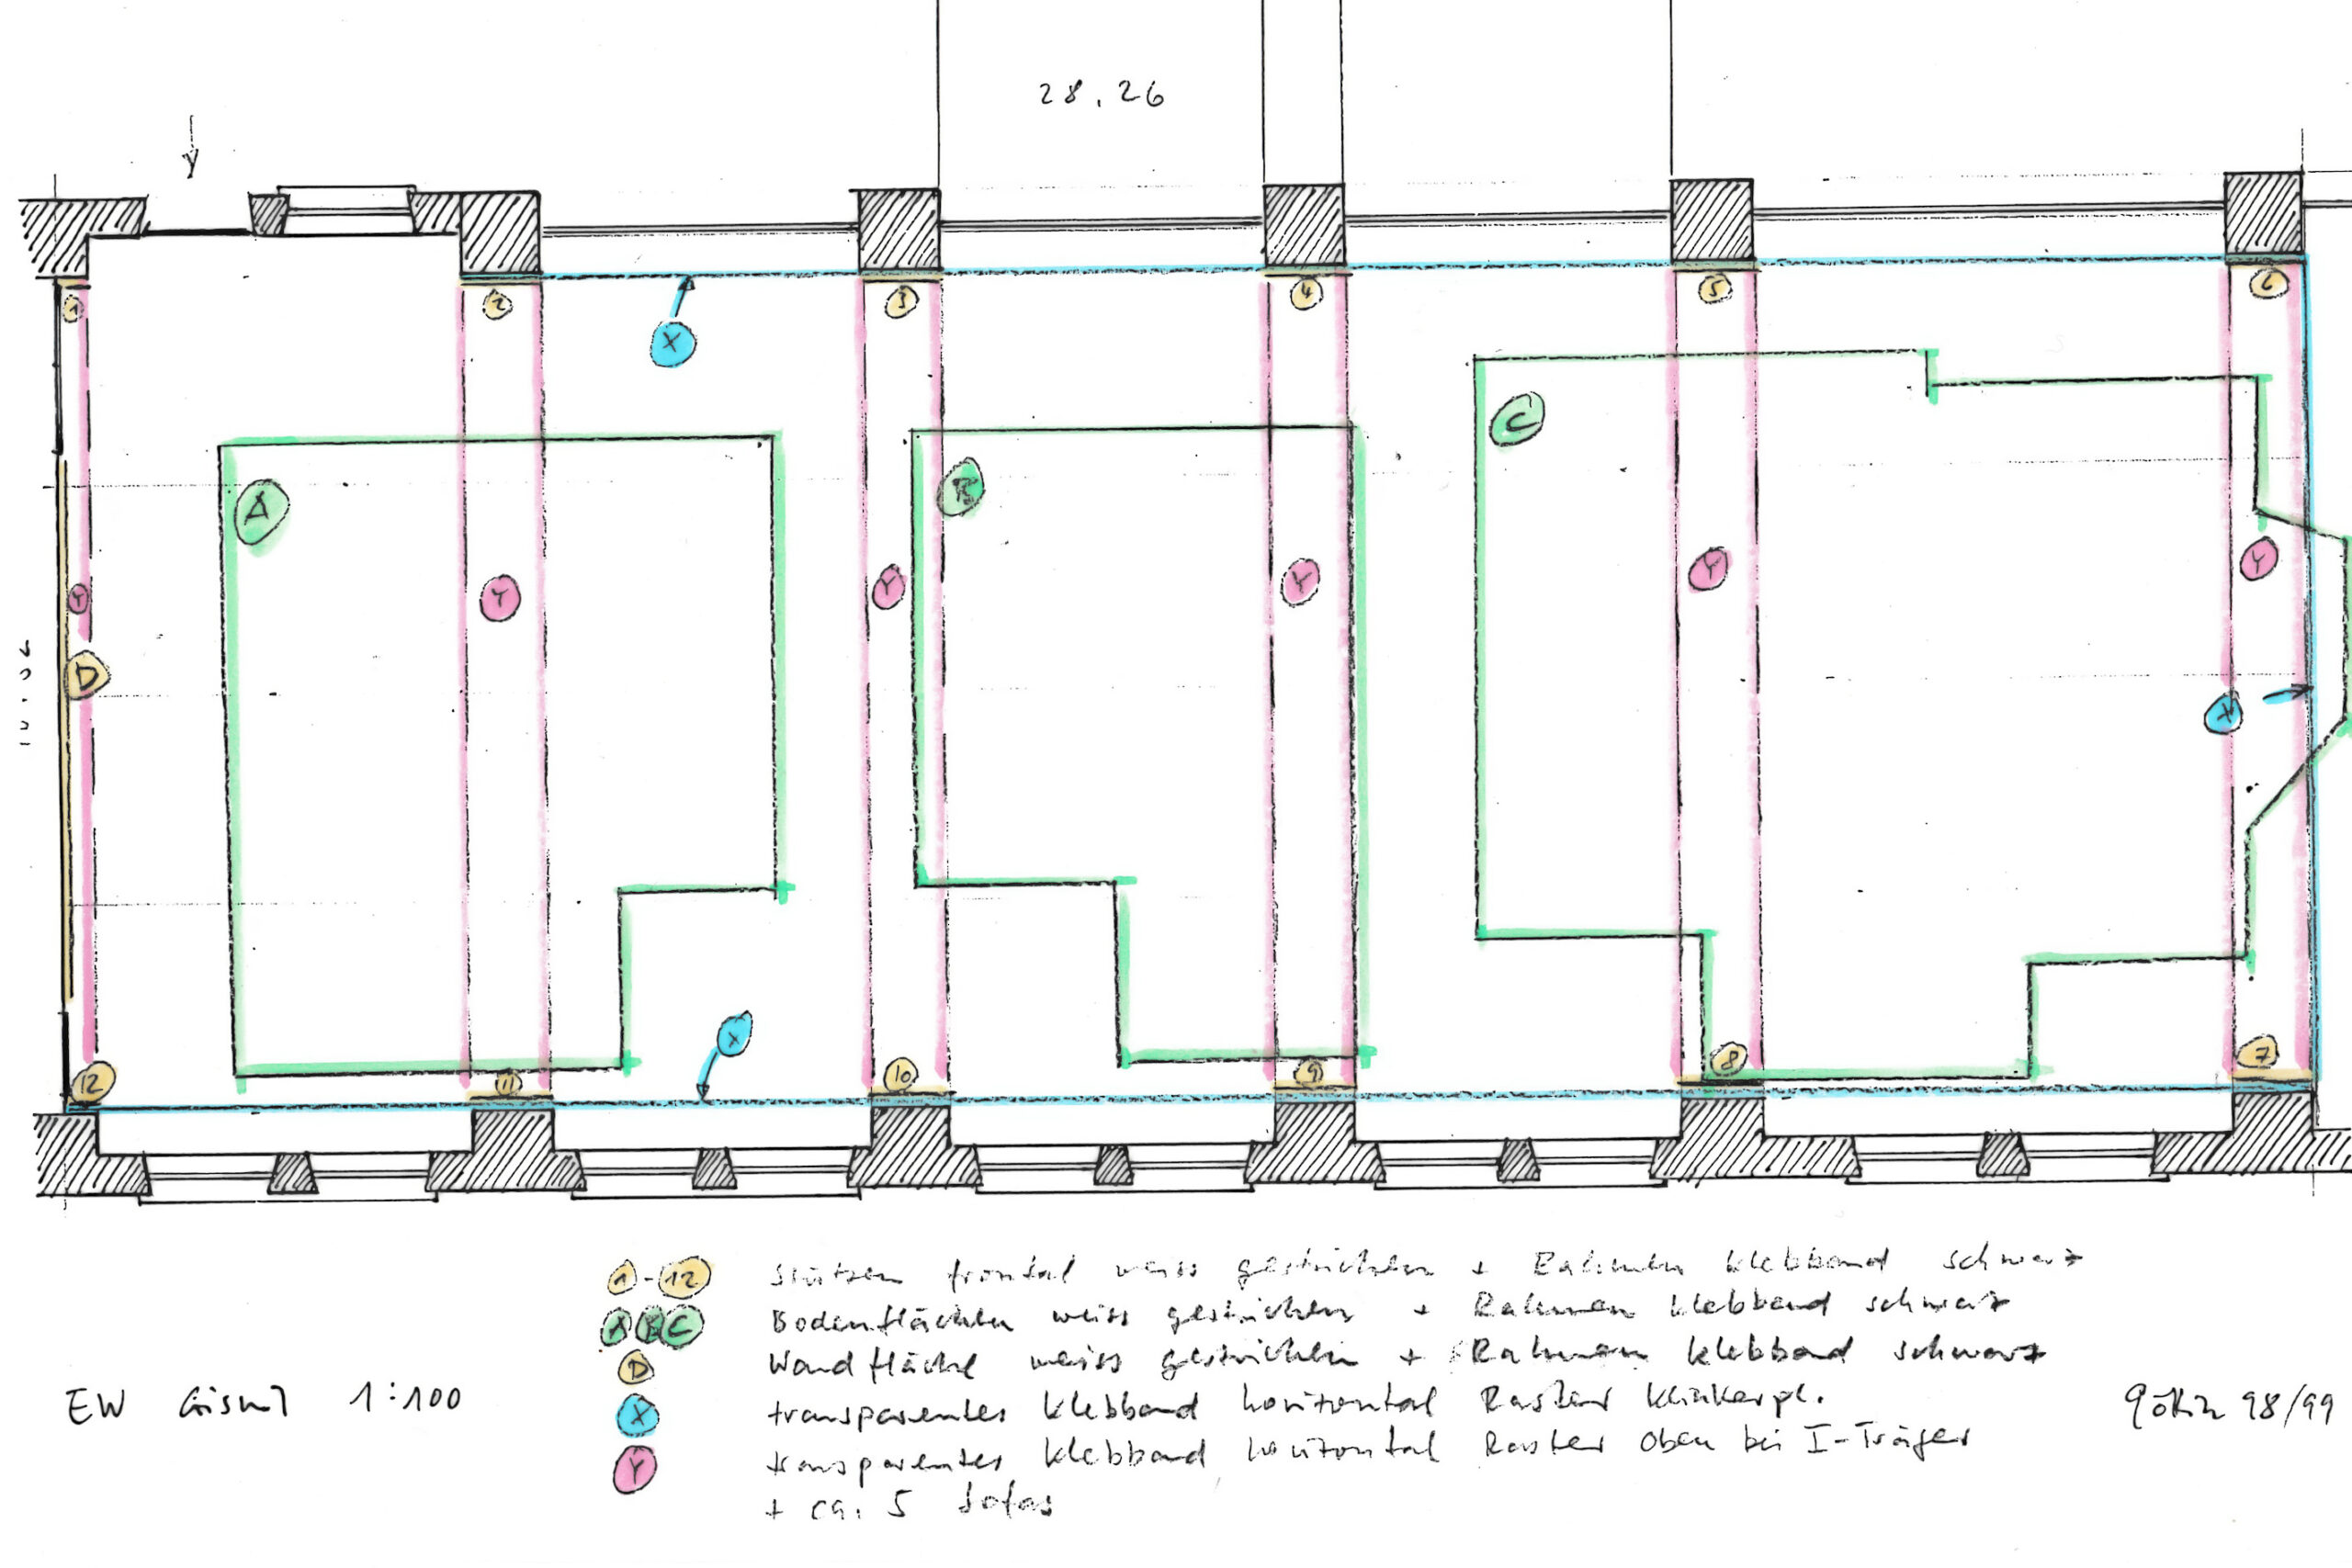 28.26
1
2
3
4
5
6
X
C
A
B
Y
Y
Y
Y
Y
Y
D
X
X
12
11
10
9
8
7
1-12 Stützen frontal weiss gestrichen + Rahmen Klebband schwarz
A B C Bodenflächen weiss gestrichen + Rahmen Klebband schwarz
D Wandfläche weiss gestrichen + Rahmen Klebband schwarz
EW 1:100
X transparentes Klebband horizontal Raster Klinkerpl.
98/99
Y transparentes Klebband horizontal Raster oben bei I-Träger
+ ca. 5 Sofas